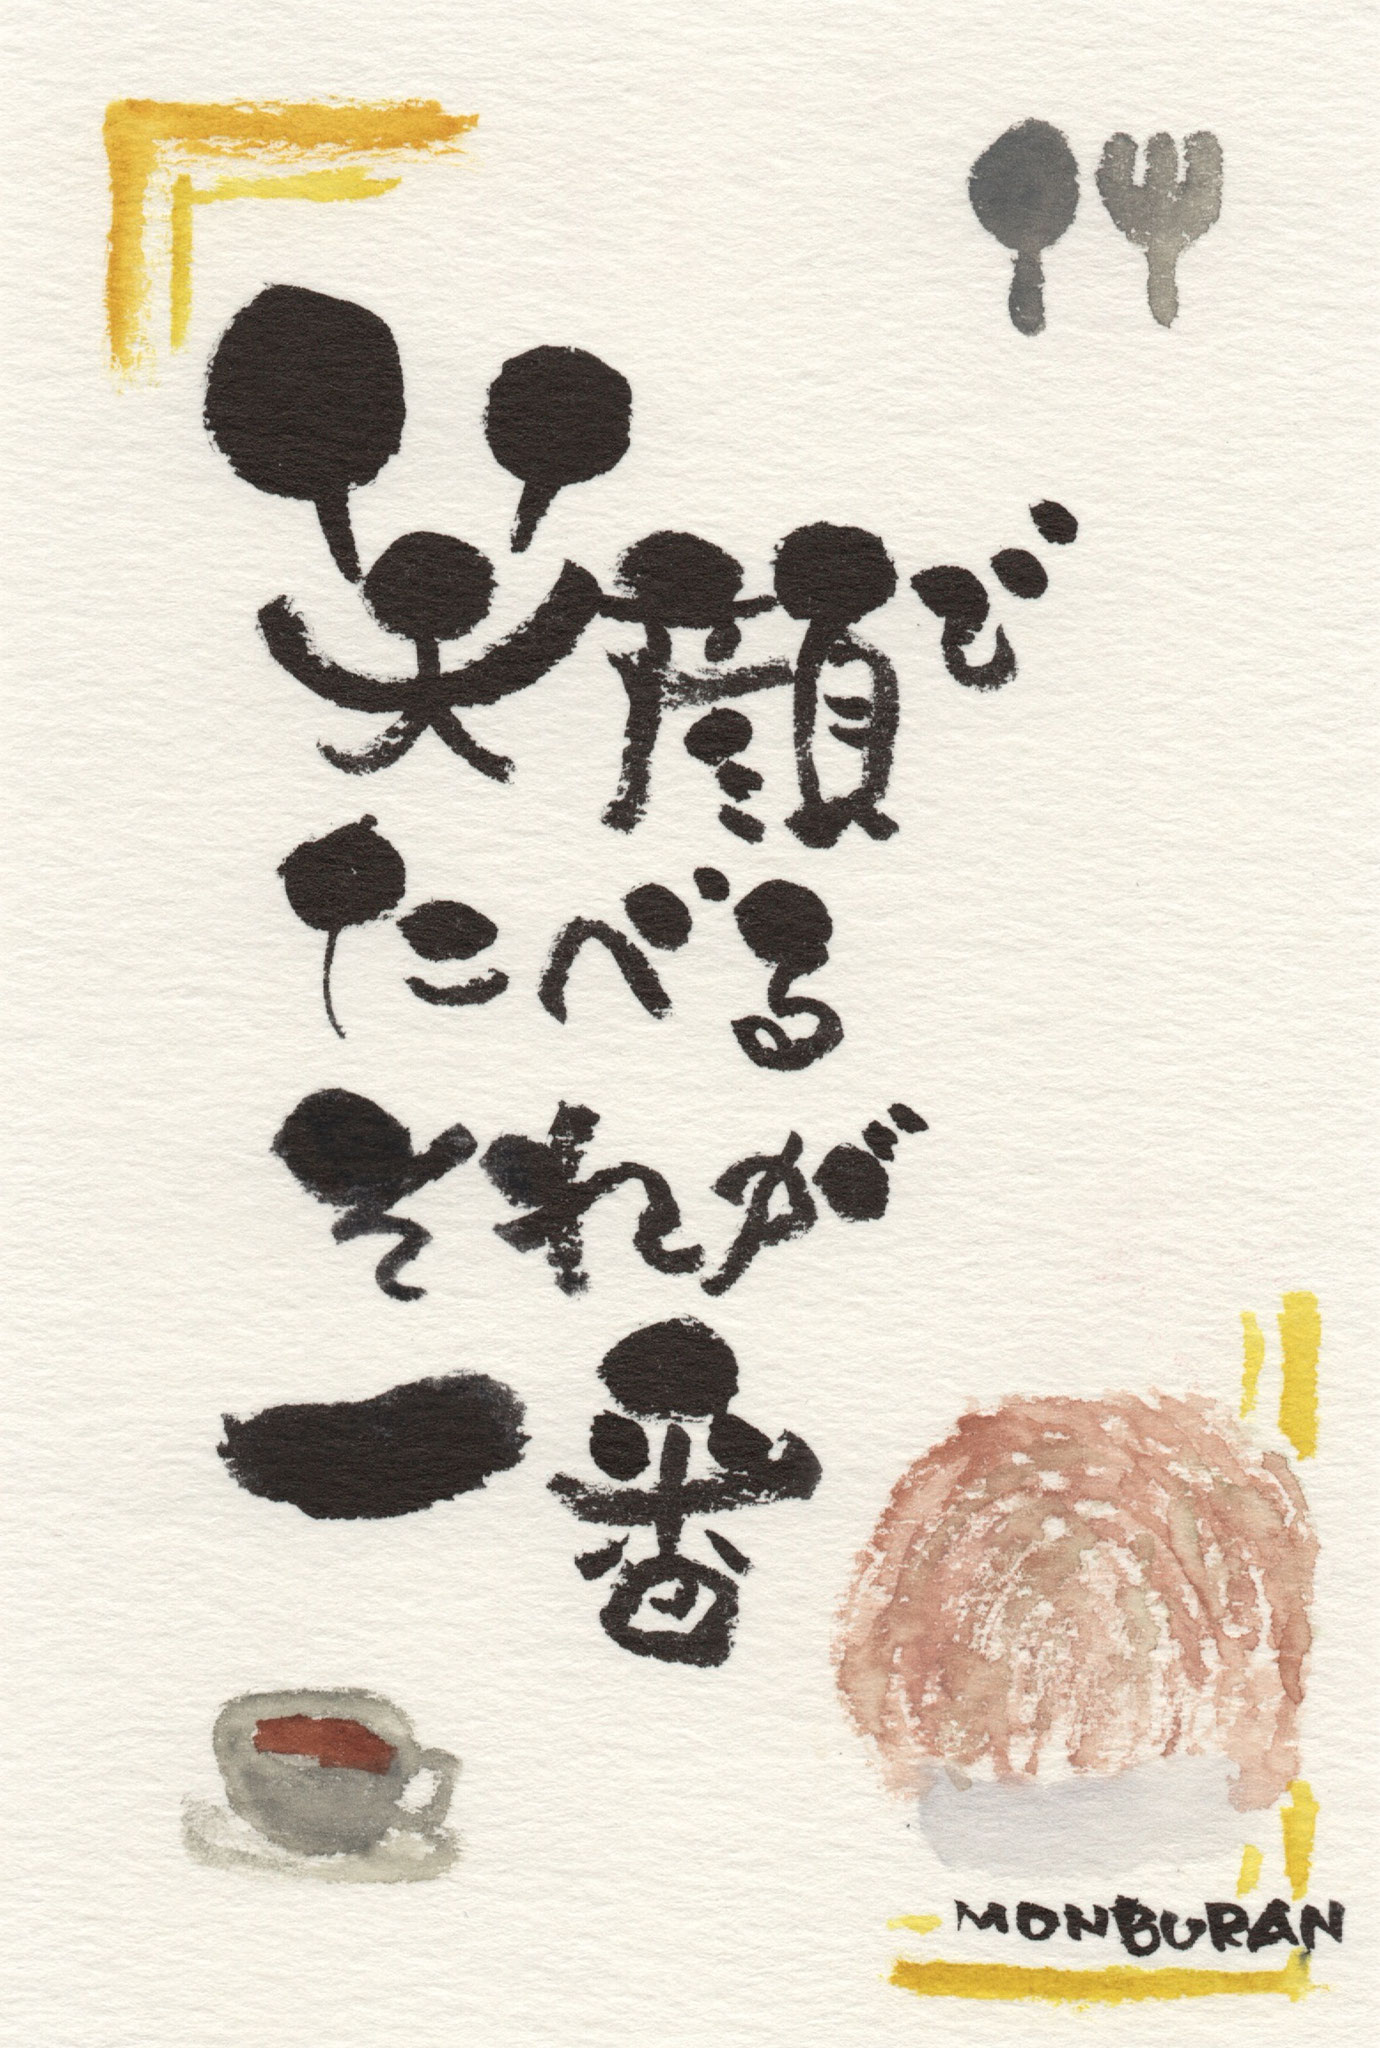 笑顔で
たべる
それが
一番
MONBURAN